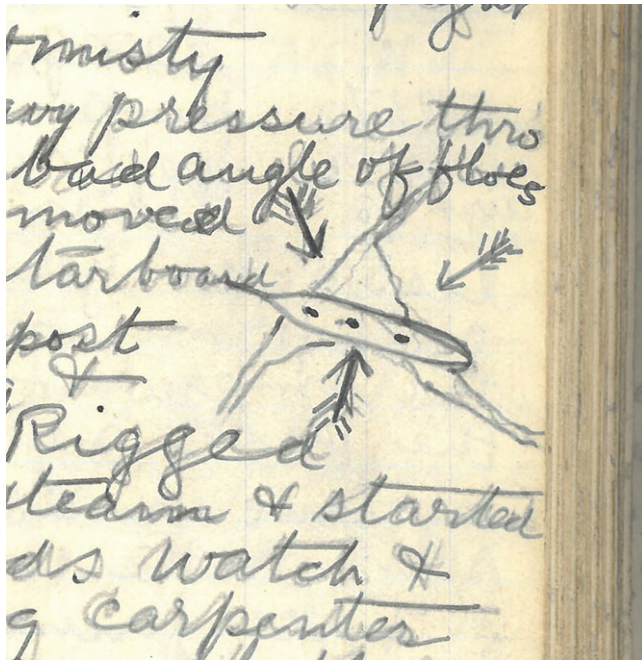 misty
pressure thro
bad angle of floes
moved
tarboard
post
&
Rigged
steam & started
ds watch &
g carpenter